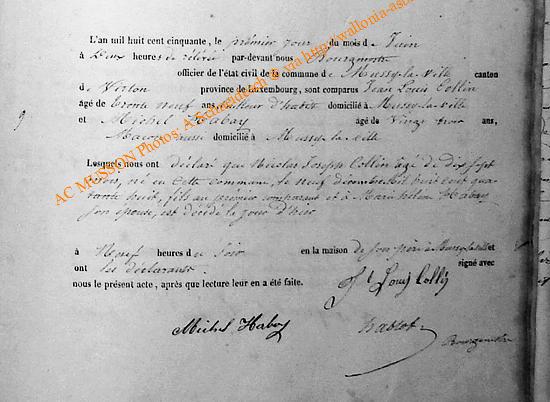 L'an mil huit cent cinquante, le premier jour du mois de Juin
à Deux heures de relevée par-devant nous Bourgmestre
officier de l'état civil de la commune de Mussy-la-ville canton
de Virton province de Luxembourg, sont comparus Jean Louis Collin
âgé de trente neuf ans, tailleur d'habits domicilié à Mussy-la-ville
et Michel Habay âgé de Vingt trois ans,
9
aussi domicilié à Mussy-la-ville
Lesquels nous ont déclaré que Nicolas Joseph Collin âgé de dix sept
mois, né en cette commune, le neuf décembre mil huit cent qua
rante huit, fils au premier comparant et à Marie Habay
son épouse, est décédé le jour d'hier
à Neuf heures du Soir en la maison de son père à Mussy-la-ville et
ont les déclarants signé avec
nous le présent acte, après que lecture leur en a été faite.
Jn Louis Collin
Michel Habay
Bourgmestre
AC MUSSON Photos: A Schmickrath © via http://wallonia-asbl